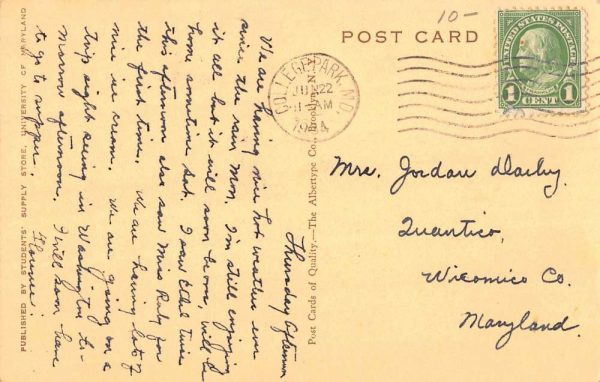 10-
POST CARD
UNITED STATES POSTAGE
1 CENT 1
COLLEGE PARK, MD.
JUN 22
AM
Thursday Afternoon
We are having nice hot weather ever
since the rain Mon. I'm still enjoying
it all but it will soon be over, will be
home sometime Sat. I saw Ethel twice
this afternoon also saw Miss Ruby for
the first time. We are having lots of
nice ice cream. We are going on a
trip sight seeing in Washington to-
morrow afternoon. I will soon have
to go to supper.
Florence.
Mrs. Jordan
Quantico,
Wicomico Co.
Maryland.
Post Cards of Quality.—The Albertype Co., Brooklyn, N. Y.
PUBLISHED BY STUDENTS' SUPPLY STORE, UNIVERSITY OF MARYLAND